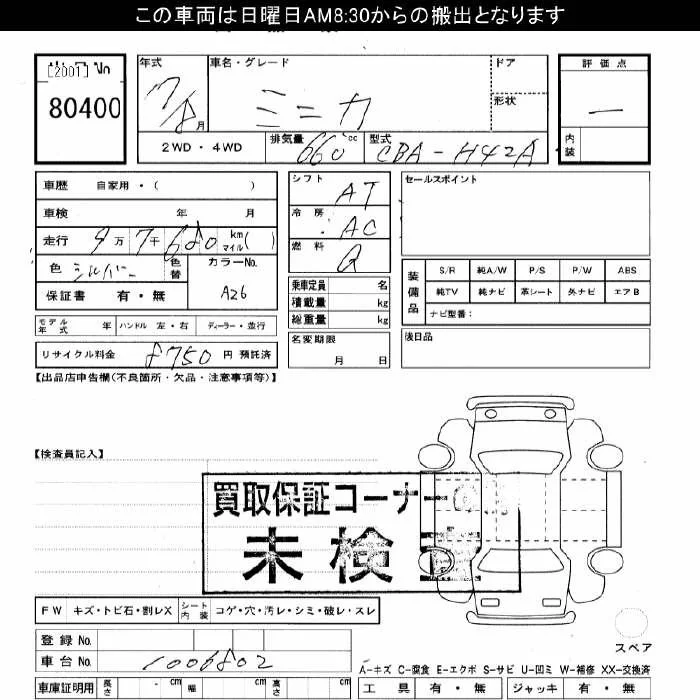 この車両は日曜日AM8:30からの搬出となります
[2001] No
80400
年式
17/8 月
車名・グレード
ミニカ
ドア
形状
評価点
—
内装
2WD・4WD
排気量 660 cc
型式 CBA-H42A
車歴 自家用・( )
車検 年 月
走行 9万 7千 680 km マイル ( )
色 シルバー 色替
カラーNo.
A26
保証書 有・無
モデル年式 年 ハンドル 左・右 ディーラー・並行
リサイクル料金 8750 円 預託済
シフト AT
冷房 AC
燃料 G
乗車定員 名
積載量 kg
総重量 kg
名変期限
月 日
セールスポイント
装備品
S/R 純A/W P/S P/W ABS
純TV 純ナビ 革シート 外ナビ エアB
ナビ型番:
後日品
【出品店申告欄(不良箇所・欠品・注意事項等)】
【検査員記入】
買取保証コーナー
未検
FW キズ・トビ石・割レX シート内装 コゲ・穴・汚レ・シミ・破レ・スレ
登録No.
車台No. 1006802
車庫証明用 長さ cm 幅 cm 高さ cm
スペア
A-キズ C-腐食 E-エクボ S-サビ U-凹ミ W-補修 XX-交換済
工具 有・無 ジャッキ 有・無